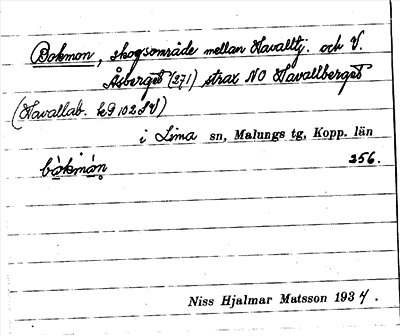 Bokmon, skogsområde mellan Havalltj. och V.
Åsberget (271) strax NO Havallberget
(Havallab. k9 102 SV)
i Lima sn, Malungs tg, Kopp. län
bòkmàn 256.
Niss Hjalmar Matsson 1934.